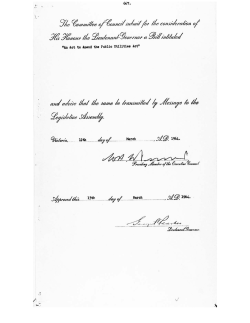 967.
The Committee of Council submit for the consideration of
His Honour the Lieutenant-Governor a Bill intituled
"An Act to Amend the Public Utilities Act"
and advise that the same be transmitted by Message to the
Legislative Assembly.
Victoria 13th day of March A.D. 1964.
Presiding Member of the Executive Council
Approved this 13th day of March A.D. 1964.
Lieutenant-Governor